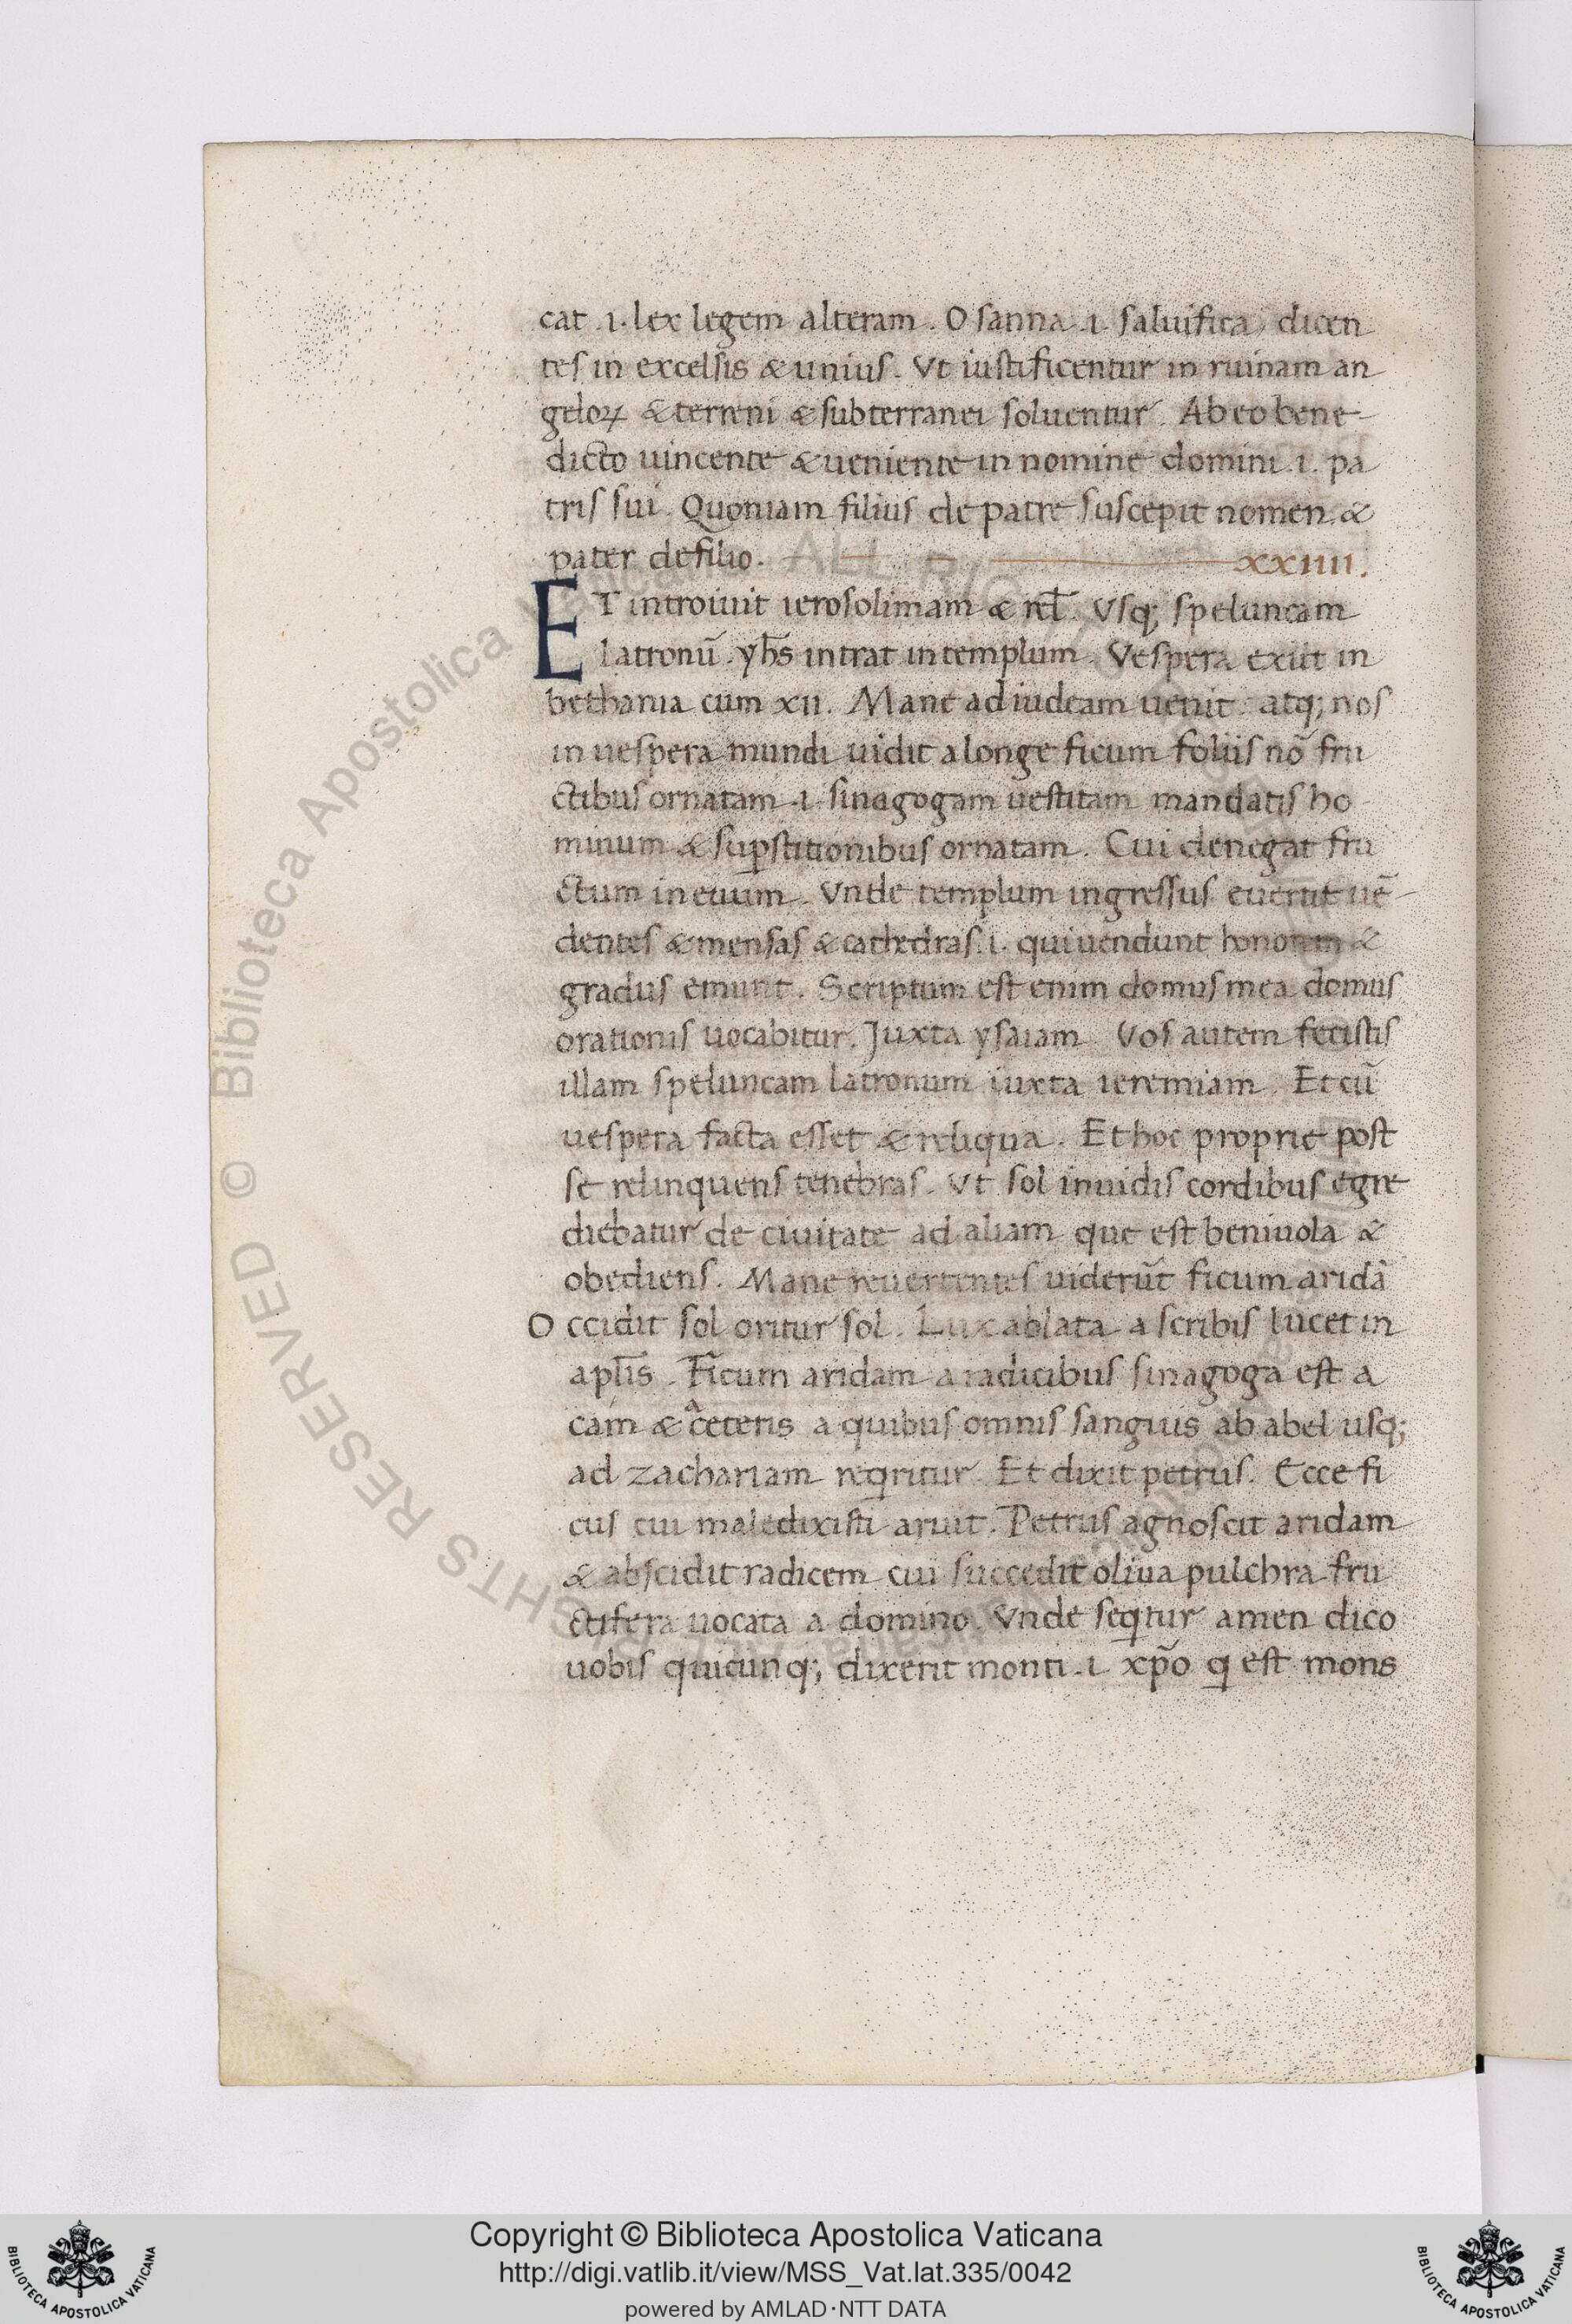 cat .i. lex legem alteram. O sanna .i. saluifica dicen
tes in excelsis & unius. Vt iustificentur in ruinam an
geloꝝ & terreni & subterranei soluentur. Ab eo bene-
dicto uincente & ueniente in nomine domini .i. pa
tris sui. Quoniam filius de patre suscepit nomen. &
pater de filio. xxiiii.
ET introiuit ierosolimam & rel̅. Vsq; speluncam
latronū. yh̅s intrat in templum. Vespera exiit in
bethania cum xii. Mane ad iudeam uenit. atq; nos
in uespera mundi uidit a longe ficum foliis nō fru
ctibus ornatam .i. sinagogam uestitam mandatis ho
minum & suꝑstitionibus ornatam. Cui denegat fru
ctum in euum. Vnde templum ingressus euertit uē-
dentes & mensas & cathedras .i. qui uendunt honorem &
gradus emunt. Scriptum est enim domus mea domus
orationis uocabitur. Juxta ysaiam. Vos autem fecistis
illam speluncam latronum iuxta ieremiam. Et cū
uespera facta esset & reliqua. Et hoc proprie post
se relinquens tenebras. Vt sol inuidis cordibus egre
diebatur de ciuitate ad aliam que est beniuola &
obediens. Mane reuertentes uiderūt ficum aridā
Occidit sol oritur sol. Lux ablata a scribis lucet in
apl̅is. Ficum aridam a radicibus sinagoga est a
cam & a ceteris a quibus omnis sanguis ab abel usq;
ad zachariam reqritur. Et dixit petrus. Ecce fi
cus cui maledixisti aruit. Petrus agnoscit aridam
& abscidit radicem cui succedit oliua pulchra fru
ctifera uocata a domino. Vnde seqtur amen dico
uobis quicunq; dixerit monti .i. xp̅o q est mons
Copyright © Biblioteca Apostolica Vaticana
http://digi.vatlib.it/view/MSS_Vat.lat.335/0042
powered by AMLAD·NTT DATA